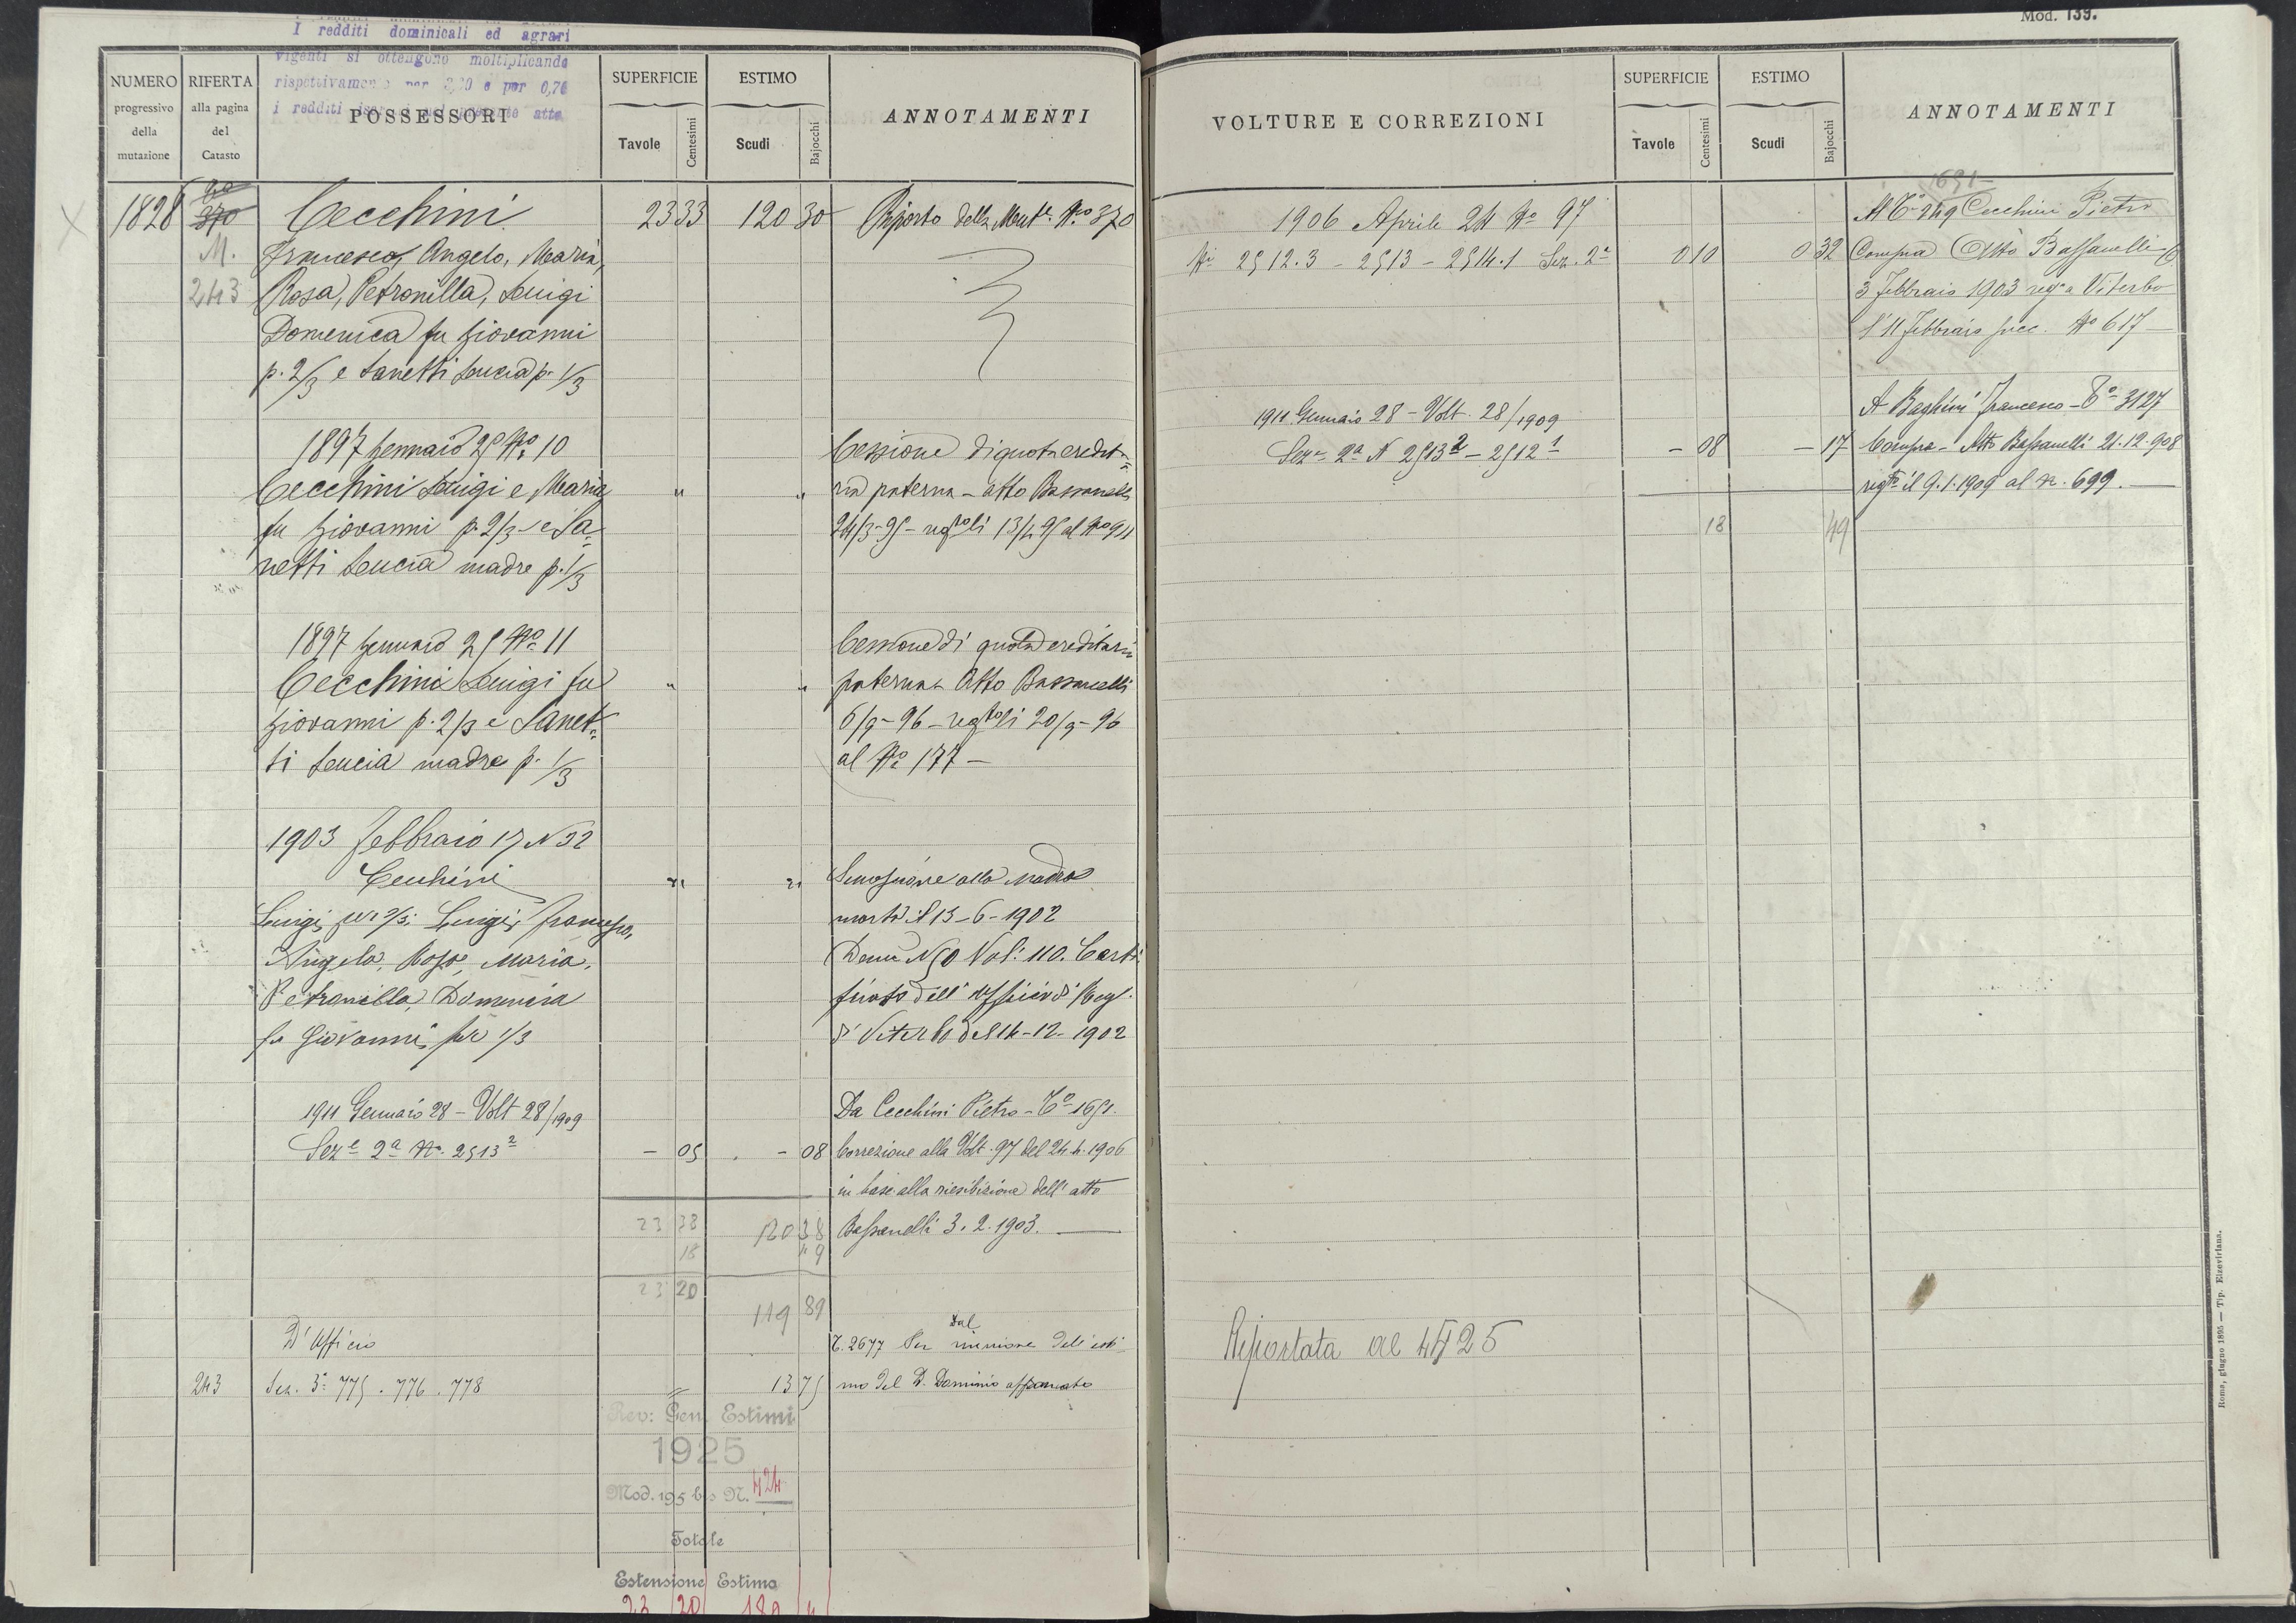 Mod. 139.
I redditi dominicali ed agrari
vigenti si ottengono moltiplicando
rispettivamen per 3,20 e per 0,70
i redditi nel presente atto
NUMERO progressivo della mutazione
RIFERTA alla pagina del Catasto
POSSESSORI
SUPERFICIE
Tavole Centesimi
ESTIMO
Scudi Bajocchi
ANNOTAMENTI
1828 370 Cecchini 23 33 120 30 Riporto della Mut.e No 370
M. Francesco, Angelo, Maria,
243 Rosa, Petronilla, Luigi
Domenica fu Giovanni
p. 2/3 e Sanetti Lucia p. 1/3
1897 Gennaio 25 No 10 Cessione di quota eredita=
Cecchini Luigi e Maria " " ria paterna - atto Bassanelli
fu Giovanni p. 2/3 e Sa= 24/3-95 - regto li 13/4 95 al No 911
netti Lucia madre p. 1/3
1897 Gennaio 25 No 11 Cessione di quota ereditaria
Cecchini Luigi fu " " paterna - Atto Bassanelli
Giovanni p. 2/3 e Sanet= 6/9-96 - regto li 20/9-96
ti Lucia madre p. 1/3 al No 177 -
1903 Febbraio 17 N 32
Cecchini " " Successione alla madre
Luigi per 2/3; Luigi, Francesco, morta il 13-6-1902
Angelo, Rosa, Maria, Denu N 50 Vol: 110. Certi
Petronilla, Domenica ficato dell'Ufficio di Regl.
fu Giovanni per 1/3 di Viterbo del 14-12-1902
1911 Gennaio 28 - Volt 28/1909 Da Cecchini Pietro - To 1651.
Seze 2a No. 2513 2 - 05 - 08 Correzione alla Volt. 97 del 24.4.1906
in base alla riesibizione dell'atto
23 38 120 38 Bassanelli 3.2.1903.
18 49
23 20 119 89
D'Ufficio T. 2677 Per riunione dal
243 Sez. 3a 775. 776. 778 13 75 mo del D. Dominio affrancato
Rev: Gen. Estimi
1925
Mod. 195 bis N. 424
Totale
Estensione Estimo
23 20
VOLTURE E CORREZIONI
SUPERFICIE
Tavole Centesimi
ESTIMO
Scudi Bajocchi
ANNOTAMENTI
1651
1906 Aprile 24 No 97 A To 249 Cecchini Pietro
Ni 2512.3 - 2513 - 2514.1 Sez. 2a 0 10 0 32 Compra Atto Bassanelli
3 Febbraio 1903 rega Viterbo
l'11 Febbraio succ. No 617
1911 Gennaio 28 - Volt. 28/1909 A Baghini Francesco - To 3127
Seze 2a N 2513 2 - 2512 1 - 08 - 17 Compra - Atto Bassanelli 21.12.908
regto il 9.1.1909 al No. 699.
18 49
Riportata al 4425
Roma, giugno 1895 — Tip. Elzeviriana.